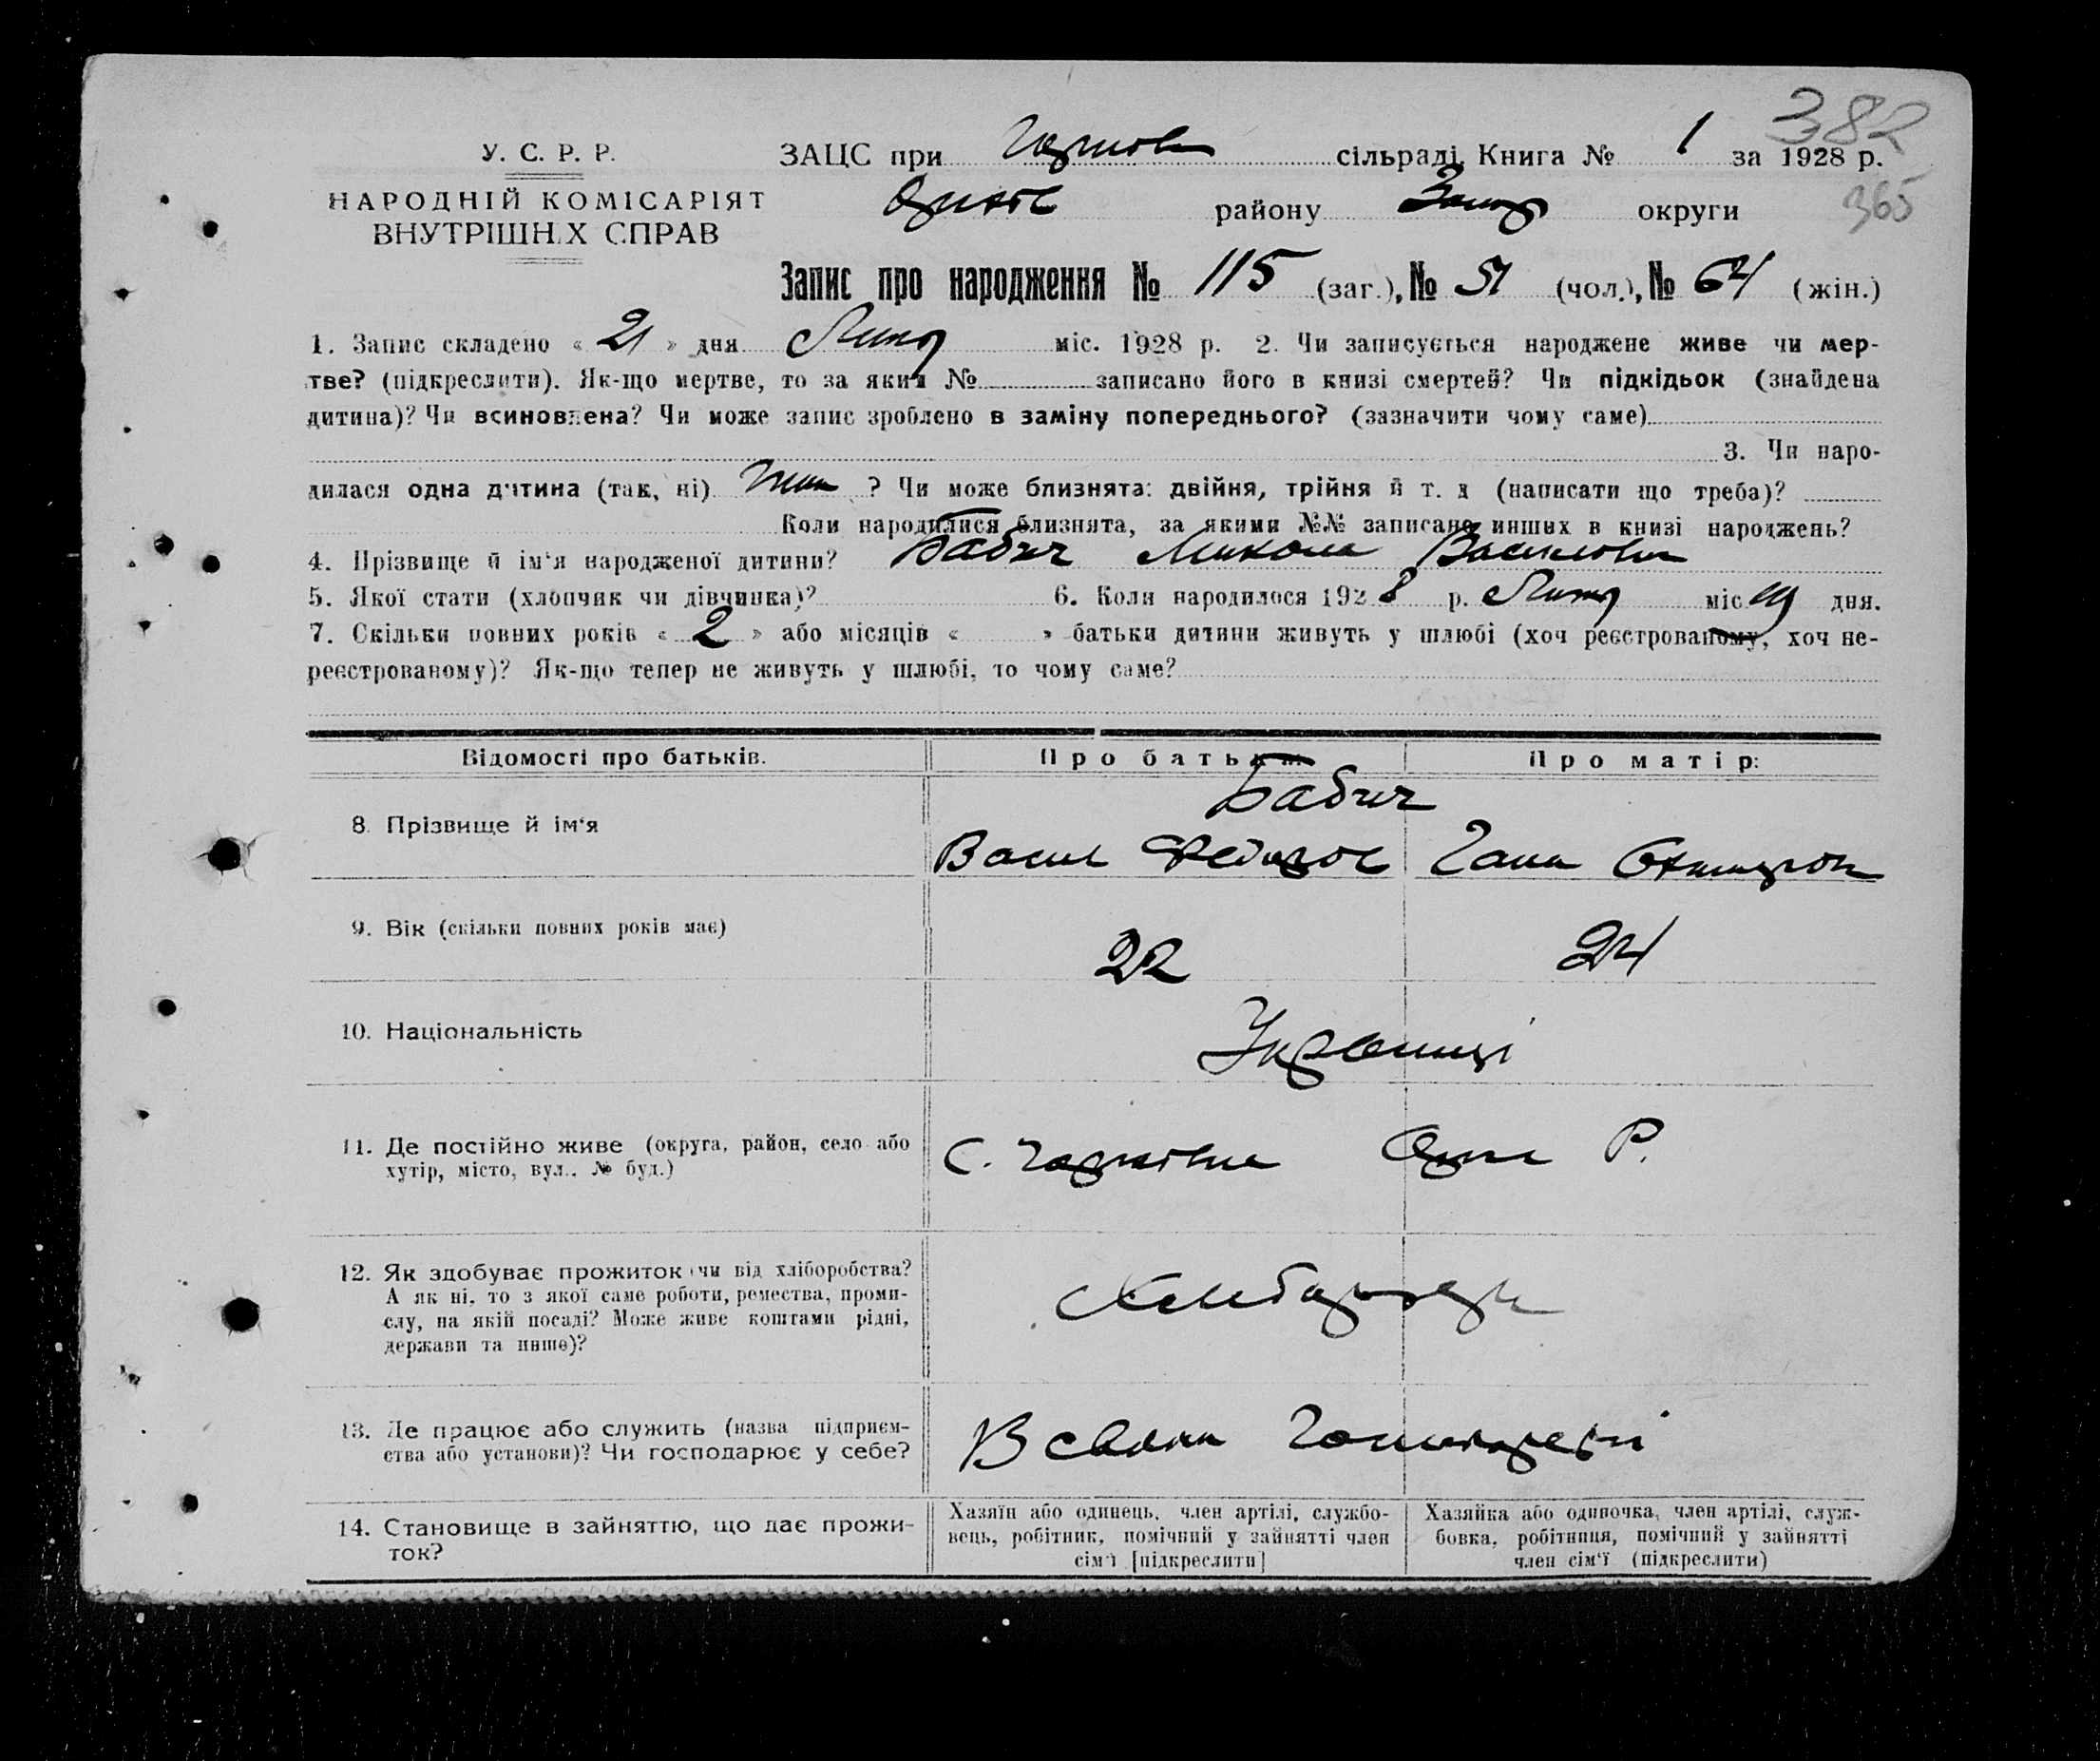 382
У. С. Р. Р.
НАРОДНІЙ КОМІСАРІЯТ
ВНУТРІШНІХ СПРАВ
ЗАЦС при сільраді, Книга № 1 за 1928 р.
району округи
365
Запис про народження № 115 (заг.), № 51 (чол.), № 64 (жін.)
1. Запис складено « 21 » дня Липня міс. 1928 р. 2. Чи записується народжене живе чи мер-
тве? (підкреслити). Як-що мертве, то за яким № записано його в книзі смертей? Чи підкідьок (знайдена
дитина)? Чи всиновлена? Чи може запис зроблено в заміну попереднього? (зазначити чому саме)
3. Чи наро-
дилася одна дитина (так, ні) так ? Чи може близнята: двійня, трійня й т. д (написати що треба)?
Коли народилися близнята, за якими №№ записано инших в книзі народжень?
4. Прізвище й ім'я народженої дитини? Бабич Микола Василович
5. Якої стати (хлопчик чи дівчинка)? 6. Коли народилося 1928 р. Липня міс. 19 дня.
7. Скільки повних років « 2 » або місяців « » батьки дитини живуть у шлюбі (хоч реєстрованому, хоч не-
реєстрованому)? Як-що тепер не живуть у шлюбі, то чому саме?
Відомості про батьків. Про батька: Про матір:
8. Прізвище й ім'я
Бабич
Васил Федоров Гана
9. Вік (скільки повних років має)
22 24
10. Національність
Українці
11. Де постійно живе (округа, район, село або
хутір, місто, вул., № буд.)
С. Р.
12. Як здобуває прожиток чи від хліборобства?
А як ні, то з якої саме роботи, ремества, проми-
слу, на якій посаді? Може живе коштами рідні,
держави та инше)?
13. Де працює або служить (назва підприєм-
ства або установи)? Чи господарює у себе?
В своїм
14. Становище в зайняттю, що дає прожи-
ток?
Хазяїн або одинець, член артілі, службо-
вець, робітник, помічний у зайнятті член
сім'ї [підкреслити]
Хазяйка або одиночка, член артілі, служ-
бовка, робітниця, помічний у зайнятті
член сім'ї (підкреслити)